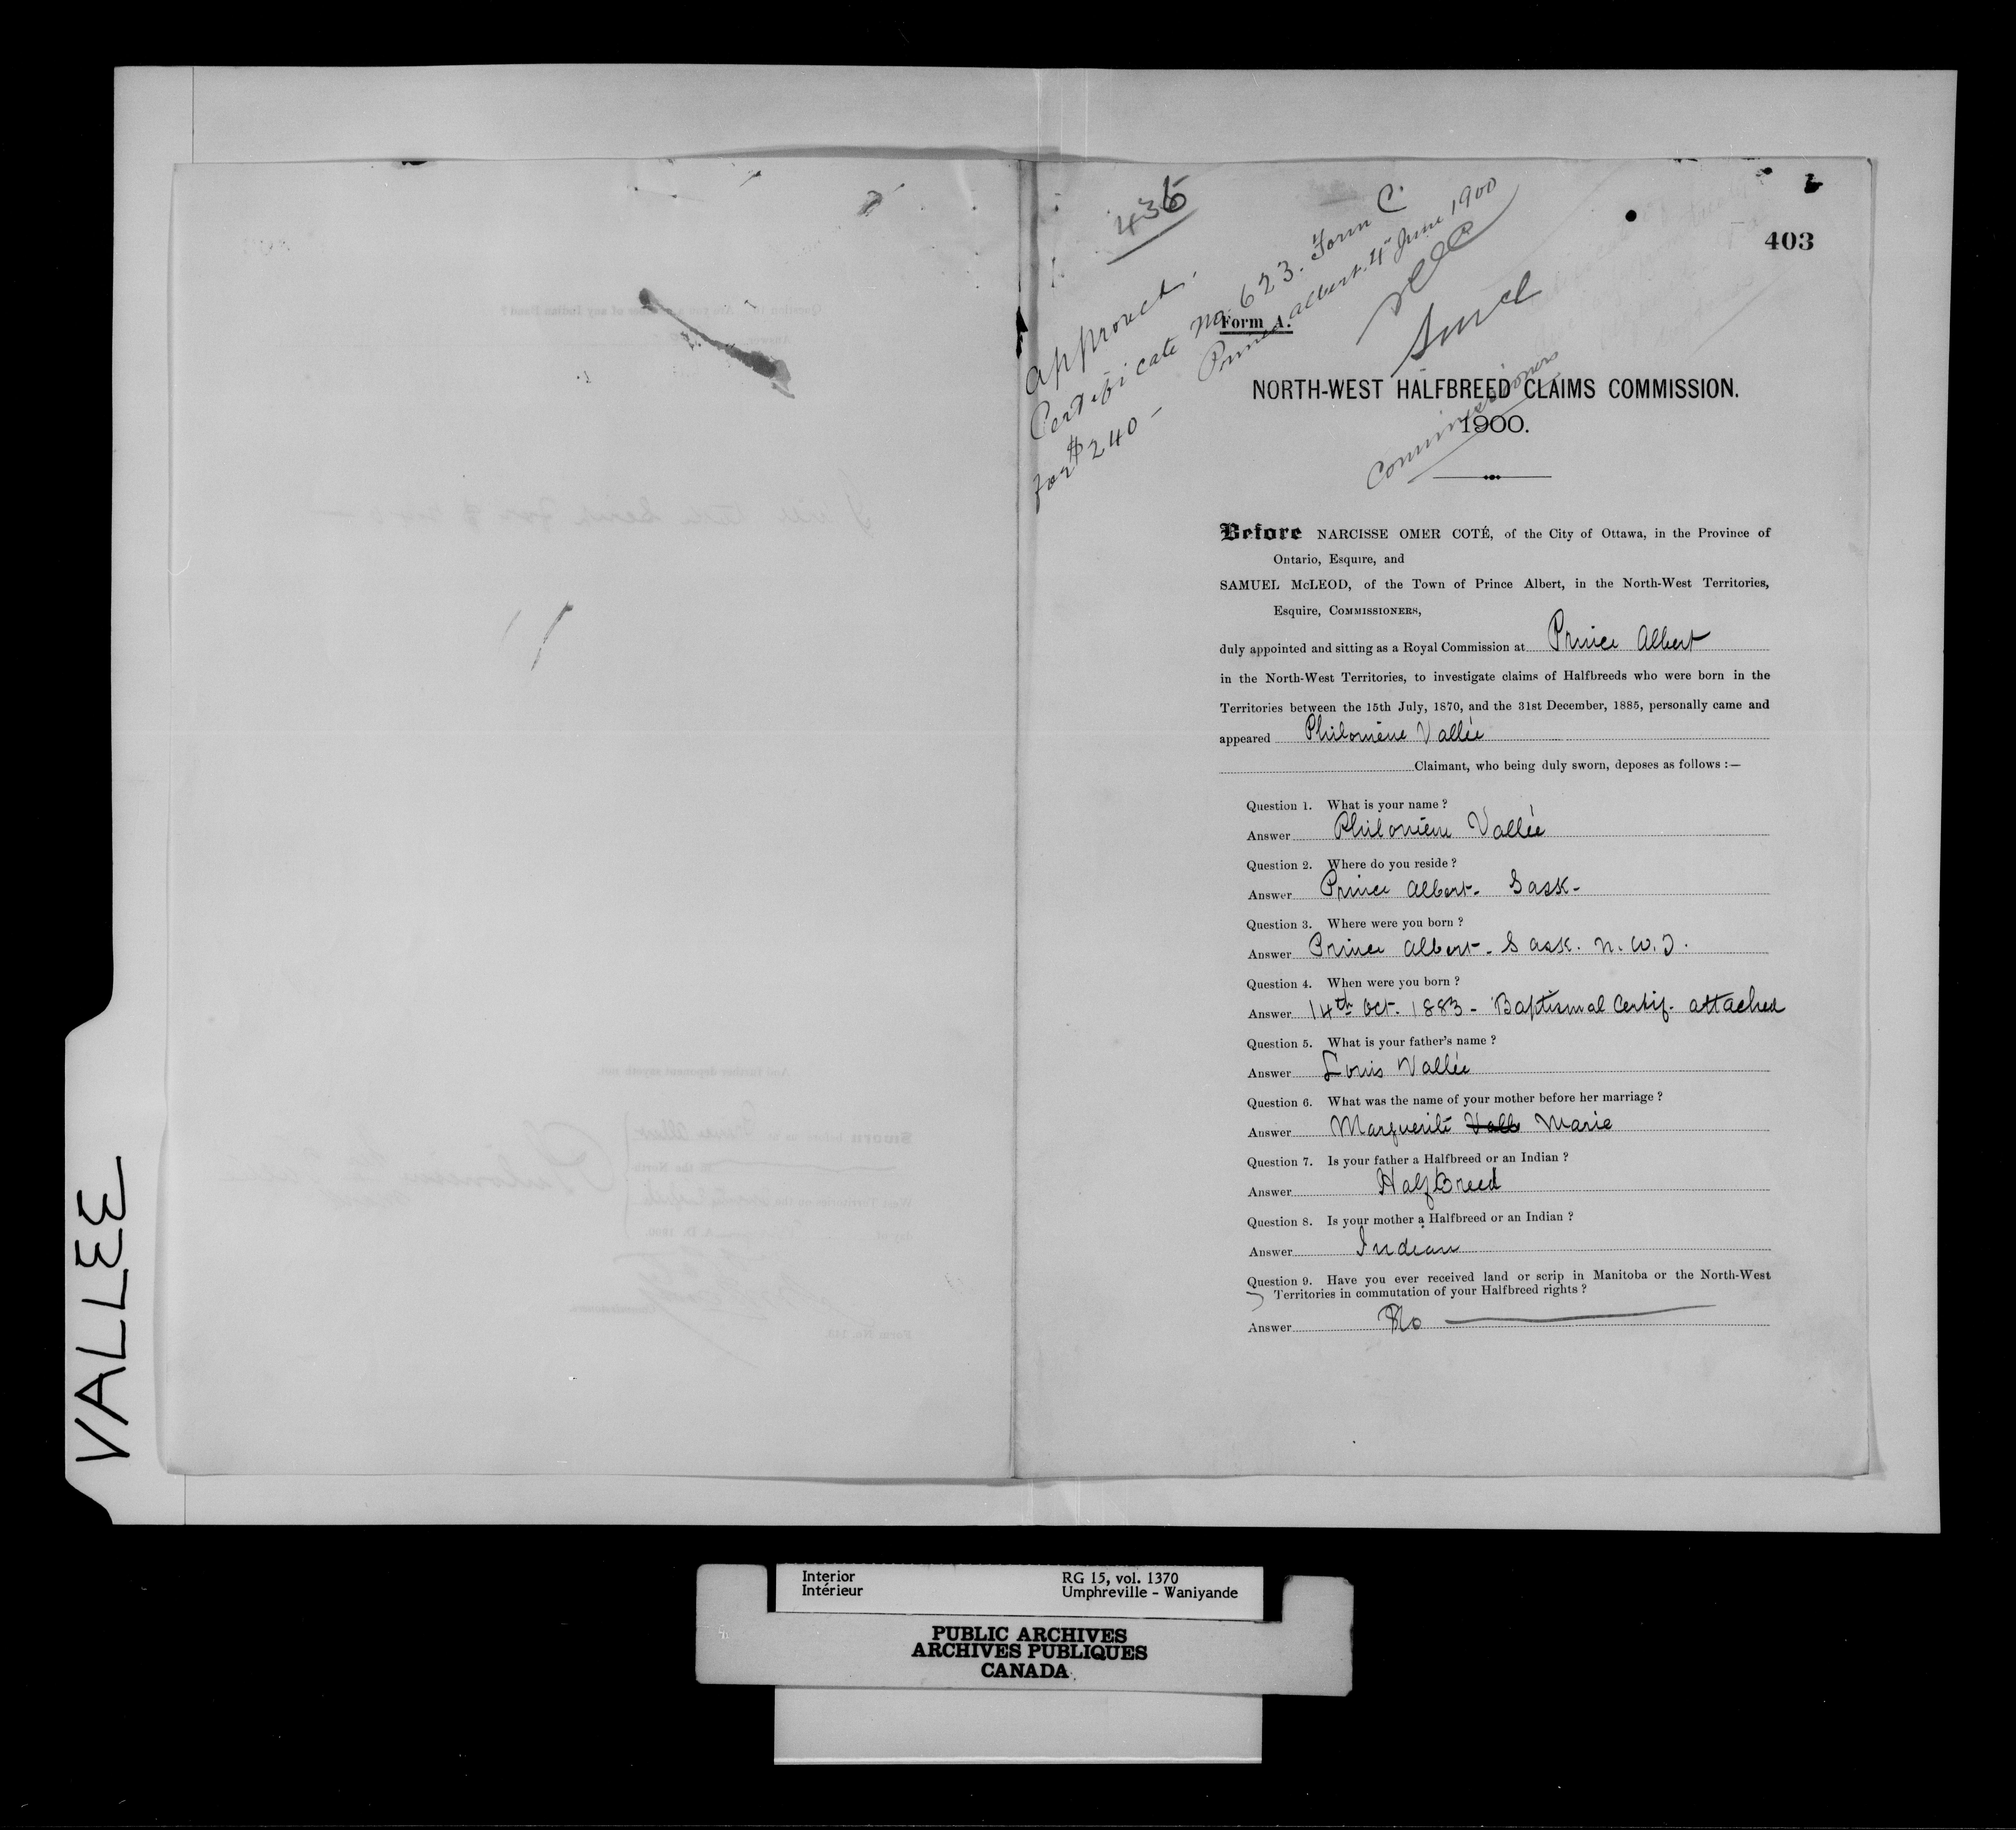 VALLEE
436
403
approved.
Certificate no. 623. Form C.
for $240 - Prince Albert. 4 June 1900
Commissioners
Form A.
NORTH-WEST HALFBREED CLAIMS COMMISSION.
1900.
Before NARCISSE OMER COTÉ, of the City of Ottawa, in the Province of
Ontario, Esquire, and
SAMUEL McLEOD, of the Town of Prince Albert, in the North-West Territories,
Esquire, COMMISSIONERS,
duly appointed and sitting as a Royal Commission at Prince Albert
in the North-West Territories, to investigate claims of Halfbreeds who were born in the
Territories between the 15th July, 1870, and the 31st December, 1885, personally came and
appeared Philomène Vallée
Claimant, who being duly sworn, deposes as follows :—
Question 1. What is your name ?
Answer Philomène Vallée
Question 2. Where do you reside ?
Answer Prince Albert - Sask -
Question 3. Where were you born ?
Answer Prince Albert - Sask. N.W.T.
Question 4. When were you born ?
Answer 14th Oct. 1883 - Baptismal Certif. attached
Question 5. What is your father's name ?
Answer Louis Vallée
Question 6. What was the name of your mother before her marriage ?
Answer Marguerite Marie
Question 7. Is your father a Halfbreed or an Indian ?
Answer HalfBreed
Question 8. Is your mother a Halfbreed or an Indian ?
Answer Indian
Question 9. Have you ever received land or scrip in Manitoba or the North-West
Territories in commutation of your Halfbreed rights ?
Answer No
Interior
Intérieur
RG 15, vol. 1370
Umphreville - Waniyande
PUBLIC ARCHIVES
ARCHIVES PUBLIQUES
CANADA